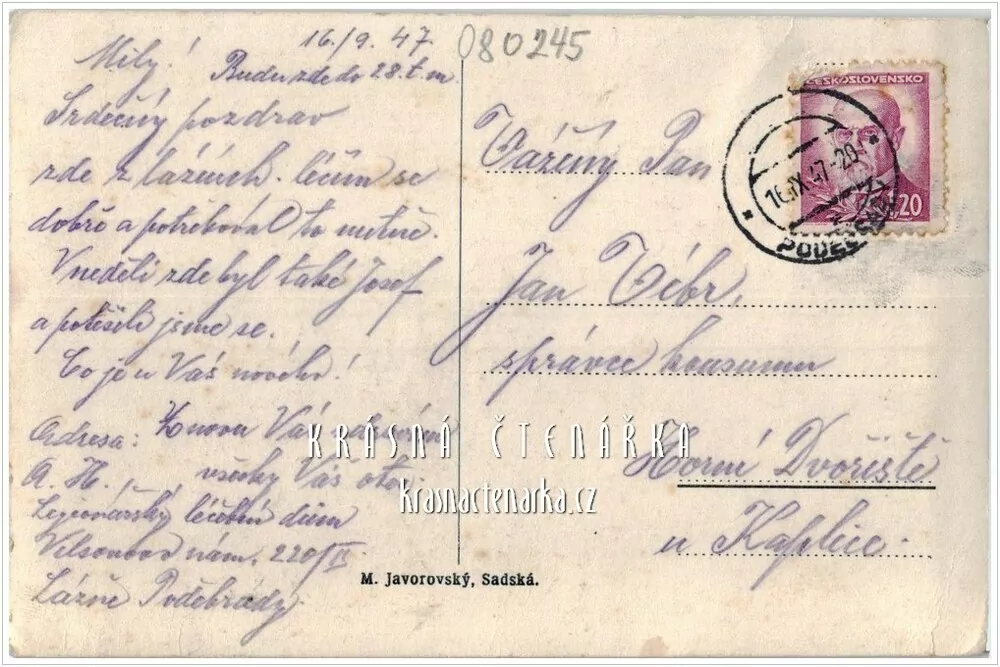 16./9. 47.
080245
Milý!
Budu zde do 28. t. m.
Srdečný pozdrav
zde z lázních. léčím se
dobře a potřeboval to nutně.
V neděli zde byl také Josef
a potěšili jsme se.
Co je u Vás nového!
Znovu Vás zdraví
všecky Váš otec.
Adresa:
A. H.,
Legionářský léčební dům
Vilsonovo nám. 220/II.
Lázně Poděbrady.
ČESKOSLOVENSKO
20
16.IX.47-20
PODĚBRADY
Vážený Pan
Jan Tébr,
správce konsumu
Horní Dvořiště
u Kaplice.
KRÁSNÁ ČTENÁŘKA
krasnactenarka.cz
M. Javorovský, Sadská.